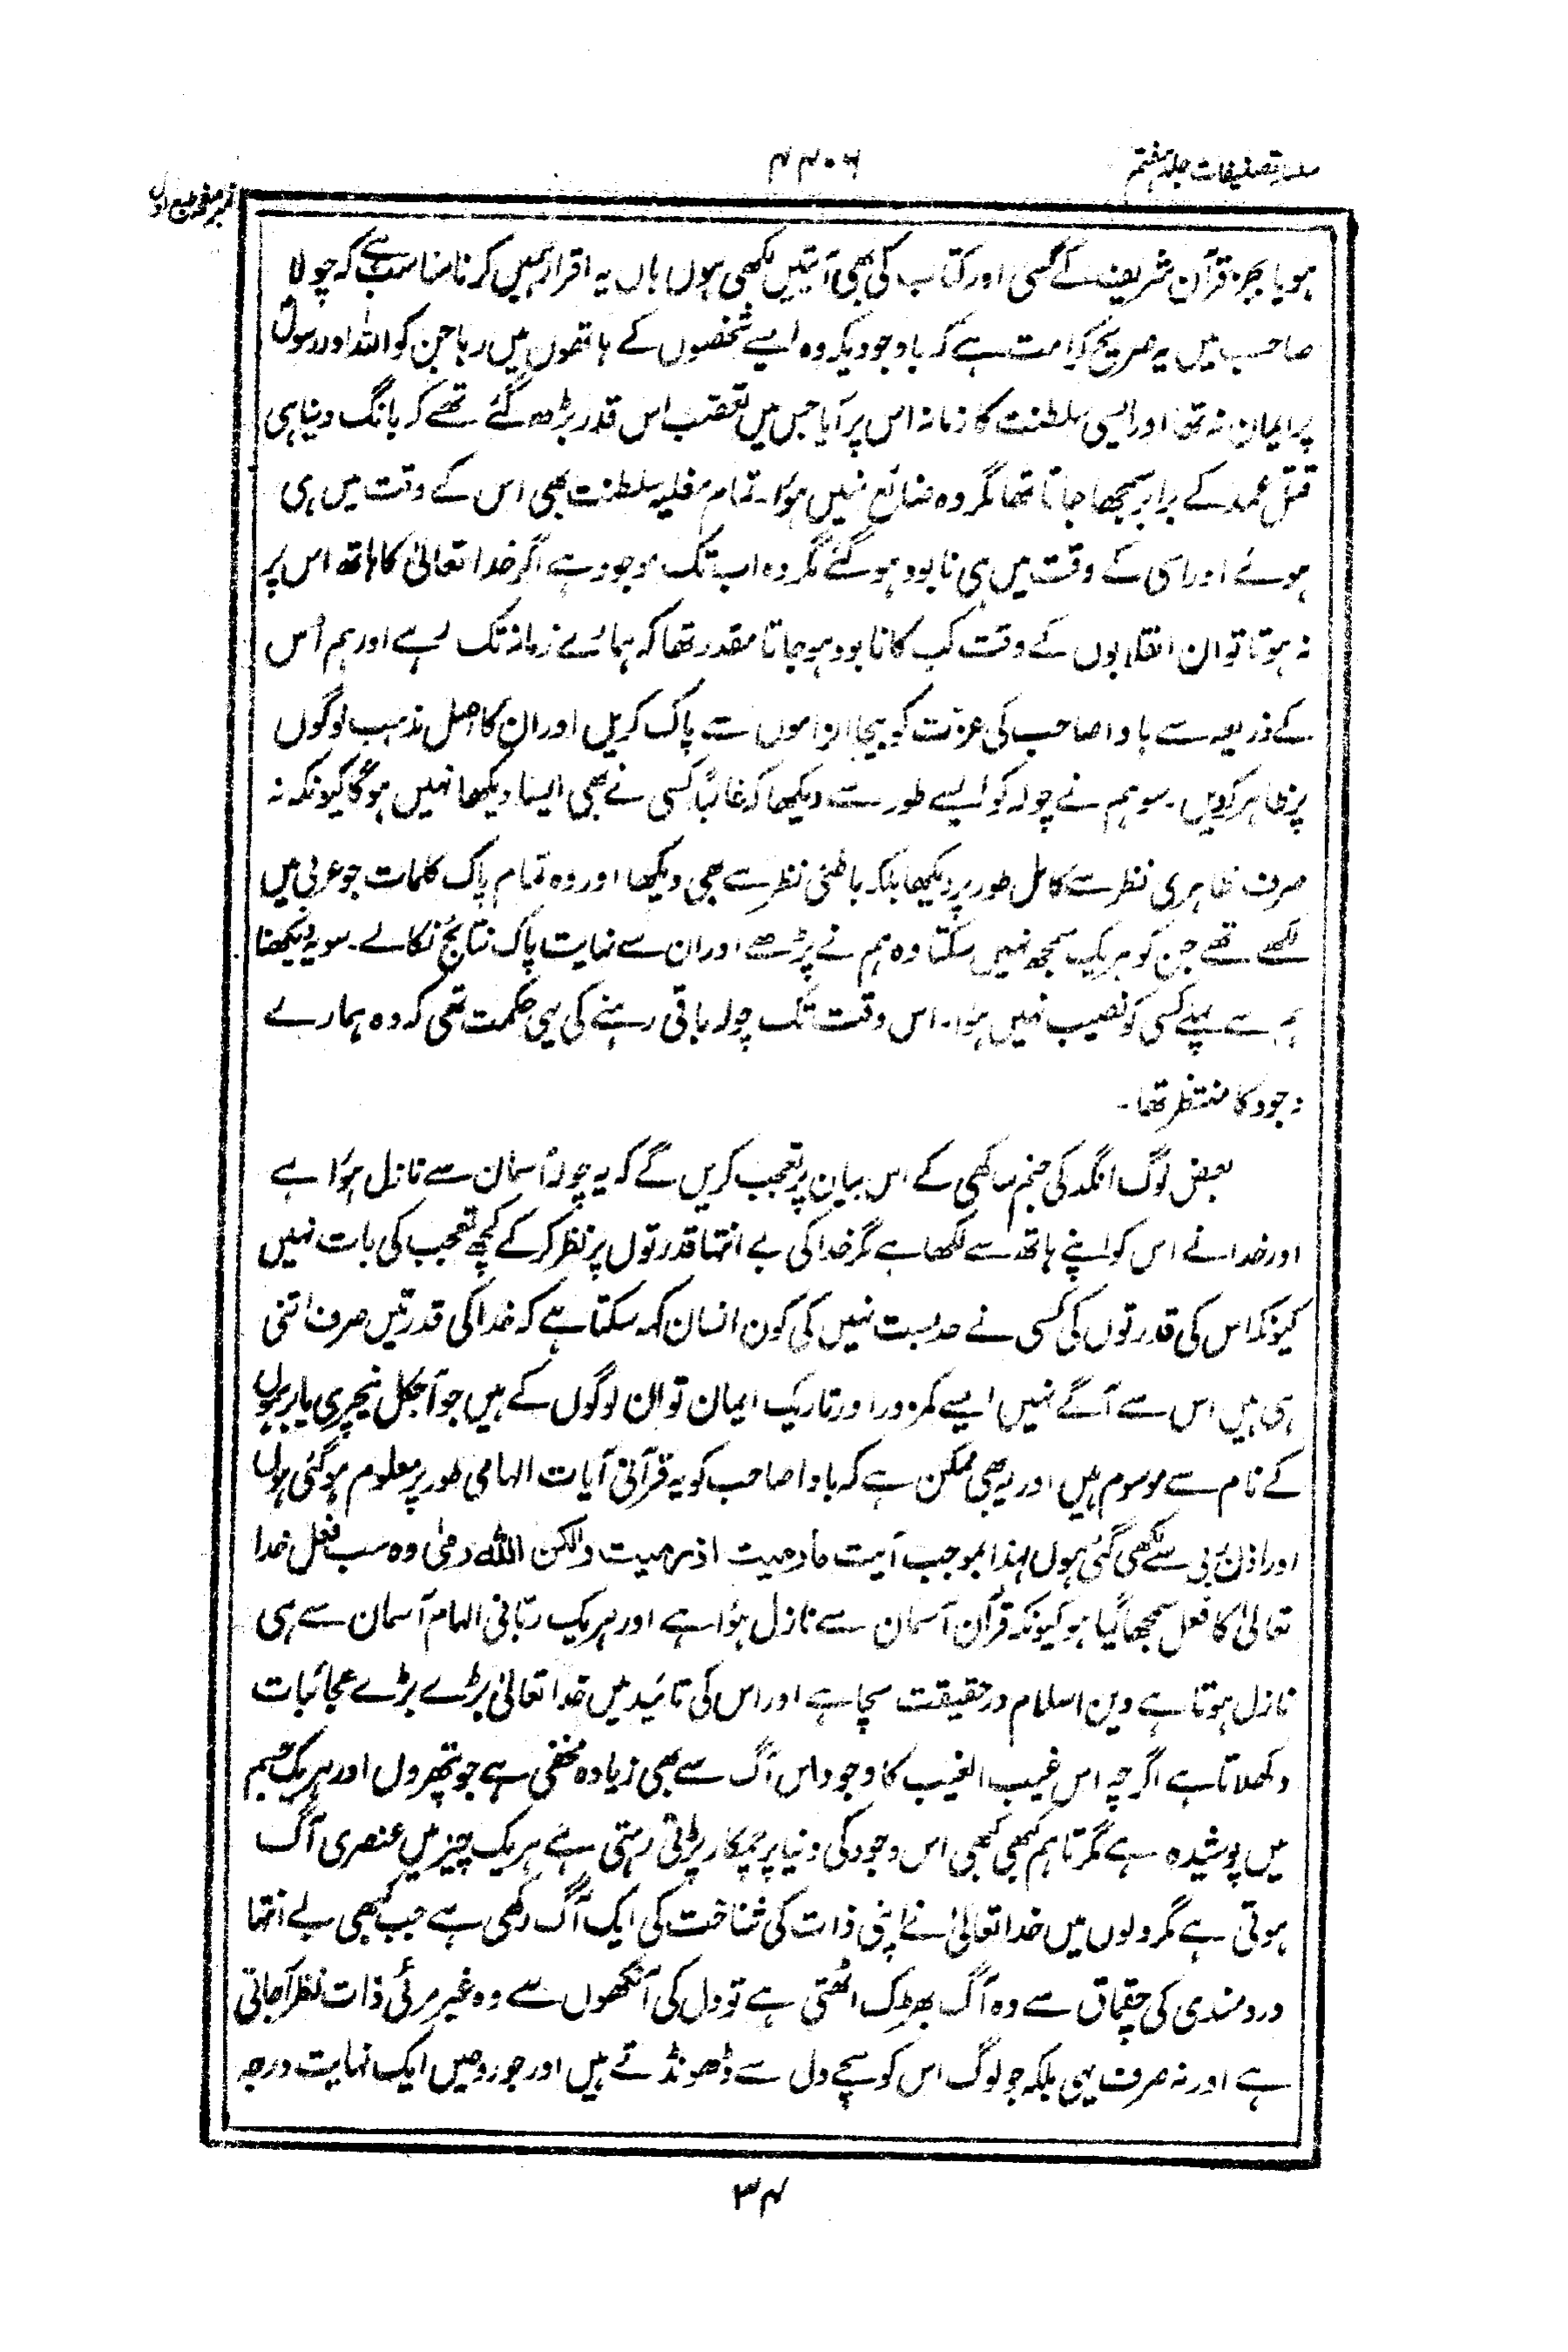 سلسلہ تصنیفات جلد ہفتم
۴۴۰۶
نمبر صفحہ طبع اول
ہو یا بجز قرآن شریف کے کسی اور کتاب کی بھی آیتیں لکھی ہوں ہاں یہ اقرار ہمیں کرنا مناسب ہے کہ چولا
صاحب میں یہ صریح کرامت ہے کہ باوجودیکہ وہ ایسے شخصوں کے ہاتھوں میں رہا جن کو اللہ اور رسول
پر ایمان نہ تھا اور ایسی سلطنت کا زمانہ اس پر آیا جس میں تعصب اس قدر بڑھ گئے تھے کہ بانگ دینا بھی
قتل عمد کے برابر سمجھا جاتا تھا مگر وہ ضائع نہیں ہوا۔ تمام مغلیہ سلطنت بھی اس کے وقت میں ہی
ہوئے اور اسی کے وقت میں ہی نابود ہو گئے مگر وہ اب تک موجود ہے اگر خدا تعالیٰ کا ہاتھ اس پر
نہ ہوتا تو ان انقلابوں کے وقت کب کا نابود ہو جاتا مقدر تھا کہ ہمارے زمانہ تک رہے اور ہم اُس
کے ذریعہ سے باوا صاحب کی عزت کو بیجا الزاموں سے پاک کریں اور ان کا اصل مذہب لوگوں
پر ظاہر کردیں۔ سو ہم نے چولہ کو ایسے طور سے دیکھا کہ غالباً کسی نے بھی ایسا دیکھا نہیں ہوگا کیونکہ نہ
صرف ظاہری نظر سے کامل طور پر دیکھا بلکہ باطنی نظر سے بھی دیکھا اور وہ تمام پاک کلمات جو عربی میں
لکھے تھے جن کو ہریک سمجھ نہیں سکتا وہ ہم نے پڑھے اور ان سے نہایت پاک نتائج نکالے۔ سو یہ دیکھنا
ہم سے پہلے کسی کو نصیب نہیں ہوا۔ اس وقت تک چولہ باقی رہنے کی یہی حکمت تھی کہ وہ ہمارے
وجود کا منتظر تھا۔
بعض لوگ انگد کی جنم ساکھی کے اس بیان پر تعجب کریں گے کہ یہ چولہ آسمان سے نازل ہوا ہے
اور خدا نے اس کو اپنے ہاتھ سے لکھا ہے مگر خدا کی بے انتہا قدرتوں پر نظر کر کے کچھ تعجب کی بات نہیں
کیونکہ اس کی قدرتوں کی کسی نے حد بست نہیں کی کون انسان کہہ سکتا ہے کہ خدا کی قدرتیں صرف اتنی
ہی ہیں اس سے آگے نہیں ایسے کمزور اور تاریک ایمان تو ان لوگوں کے ہیں جو آجکل نیچری یا برہمو
کے نام سے موسوم ہیں اور یہ بھی ممکن ہے کہ باوا صاحب کو یہ قرآنی آیات الہامی طور پر معلوم ہو گئی ہوں
اور اذن ربی سے لکھی گئی ہوں لہذا بموجب آیت ما رمیت اذ رمیت ولٰکن اللہ رمیٰ وہ سب فعل خدا
تعالیٰ کا فعل سمجھا گیا ہو کیونکہ قرآن آسمان سے نازل ہوا ہے اور ہریک ربّانی الہام آسمان سے ہی
نازل ہوتا ہے دین اسلام درحقیقت سچا ہے اور اس کی تائید میں خدا تعالیٰ بڑے بڑے عجائبات
دکھلاتا ہے اگرچہ اس غیب الغیب کا وجود اس آگ سے بھی زیادہ مخفی ہے جو پتھروں اور ہریک جسم
میں پوشیدہ ہے مگر تاہم کبھی کبھی اس وجود کی دنیا پر چمکار پڑتی رہتی ہے ہریک چیز میں عنصری آگ
ہوتی ہے مگر دلوں میں خدا تعالیٰ نے اپنی ذات کی شناخت کی ایک آگ رکھی ہے جب کبھی بے انتہا
دردمندی کی چقماق سے وہ آگ بھڑک اٹھتی ہے تو دل کی آنکھوں سے وہ غیر مرئی ذات نظر آجاتی
ہے اور نہ صرف یہی بلکہ جو لوگ اس کو سچے دل سے ڈھونڈتے ہیں اور جو روحیں ایک نہایت درجہ
۳۴